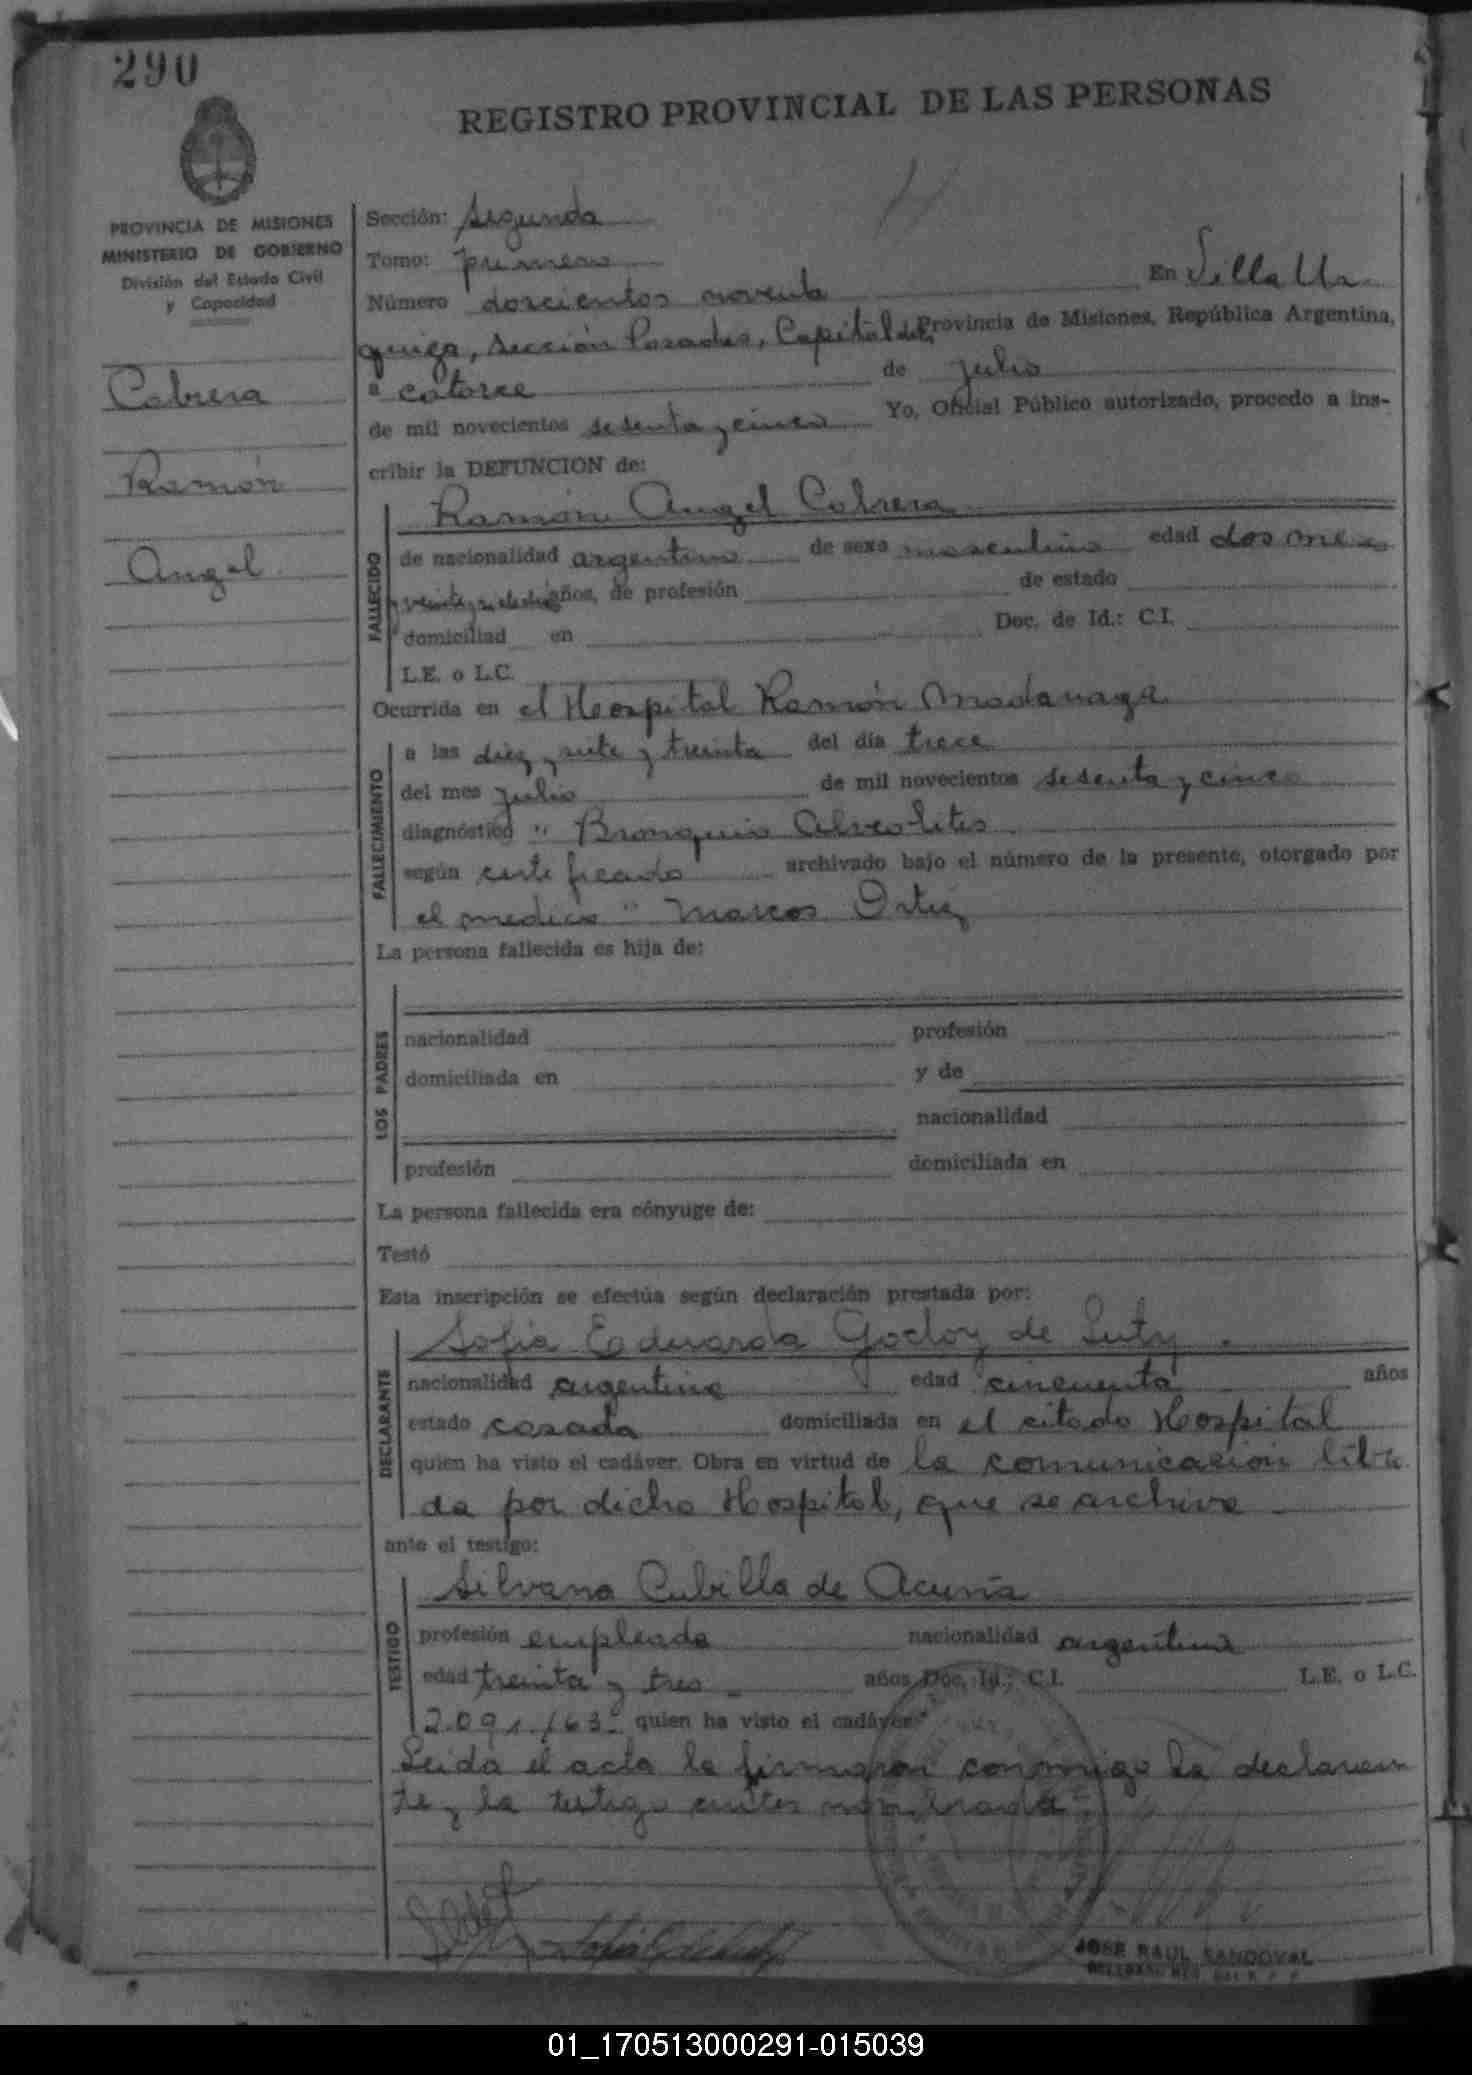 290
REGISTRO PROVINCIAL DE LAS PERSONAS
PROVINCIA DE MISIONES
MINISTERIO DE GOBIERNO
División del Estado Civil
y Capacidad
Cabrera
Ramón
Angel.
Sección: segunda
Tomo: primero
Número doscientos noventa En Villa Ur-
quiza, sección Posadas, Capital de la Provincia de Misiones, República Argentina,
a catorce de julio
de mil novecientos sesenta y cinco Yo, Oficial Público autorizado, procedo a ins-
cribir la DEFUNCION de:
Ramón Angel Cabrera
FALLECIDO
de nacionalidad argentino de sexo masculino edad dos meses
y veinte y años, de profesión de estado
domiciliad en Doc. de Id.: C.I.
L.E. o L.C.
Ocurrida en el Hospital Ramón Madariaga
FALLECIMIENTO
a las diez y siete y treinta del día trece
del mes julio de mil novecientos sesenta y cinco
diagnóstico " Bronquio Alveolitis
según certificado archivado bajo el número de la presente, otorgado por
el medico " Marcos Ortiz
La persona fallecida es hija de:
LOS PADRES
nacionalidad profesión
domiciliada en y de
nacionalidad
profesión domiciliada en
La persona fallecida era cónyuge de:
Testó
Esta inscripción se efectúa según declaración prestada por:
DECLARANTE
Sofia Eduarda Godoy de
nacionalidad argentina edad cincuenta años
estado casada domiciliada en el citado Hospital
quien ha visto el cadáver. Obra en virtud de la comunicación libra
da por dicho Hospital, que se archiva
ante el testigo:
TESTIGO
Silvana Cubilla de Acuña
profesión empleada nacionalidad argentina
edad treinta y tres años Doc. Id.: C.I. L.E. o L.C.
quien ha visto el cadáver.
Leida el acta la firmaron conmigo la declaran
te y la testigo antes nombrada
JOSE RAUL SANDOVAL
01_170513000291-015039